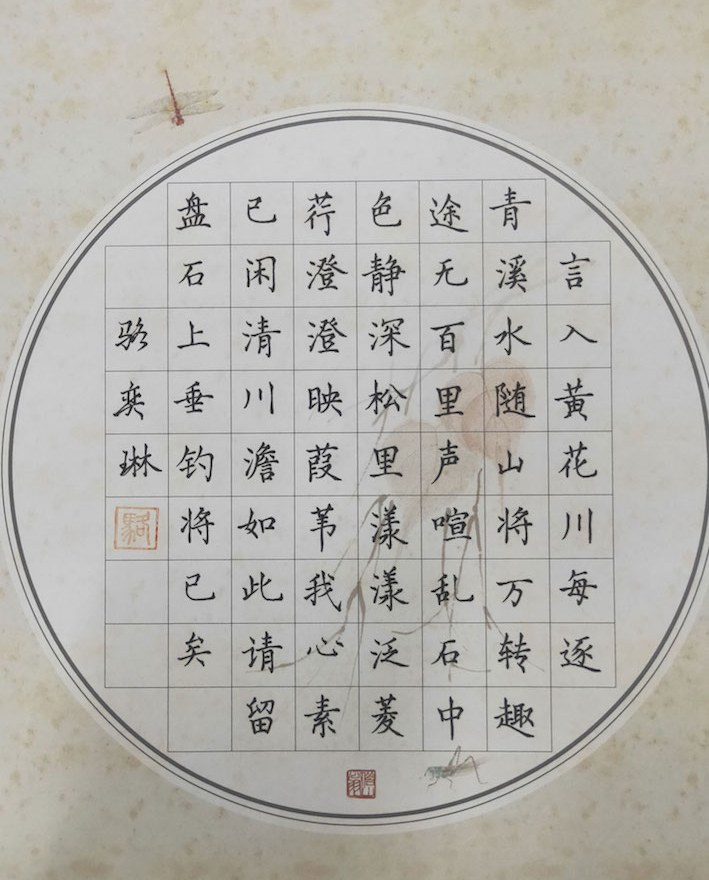 言入黄花川每逐
青溪水随山将万转趣
途无百里声喧乱石中
色静深松里漾漾泛菱
荇澄澄映葭苇我心素
已闲清川澹如此请留
盘石上垂钓将已矣
骆奕琳
駱